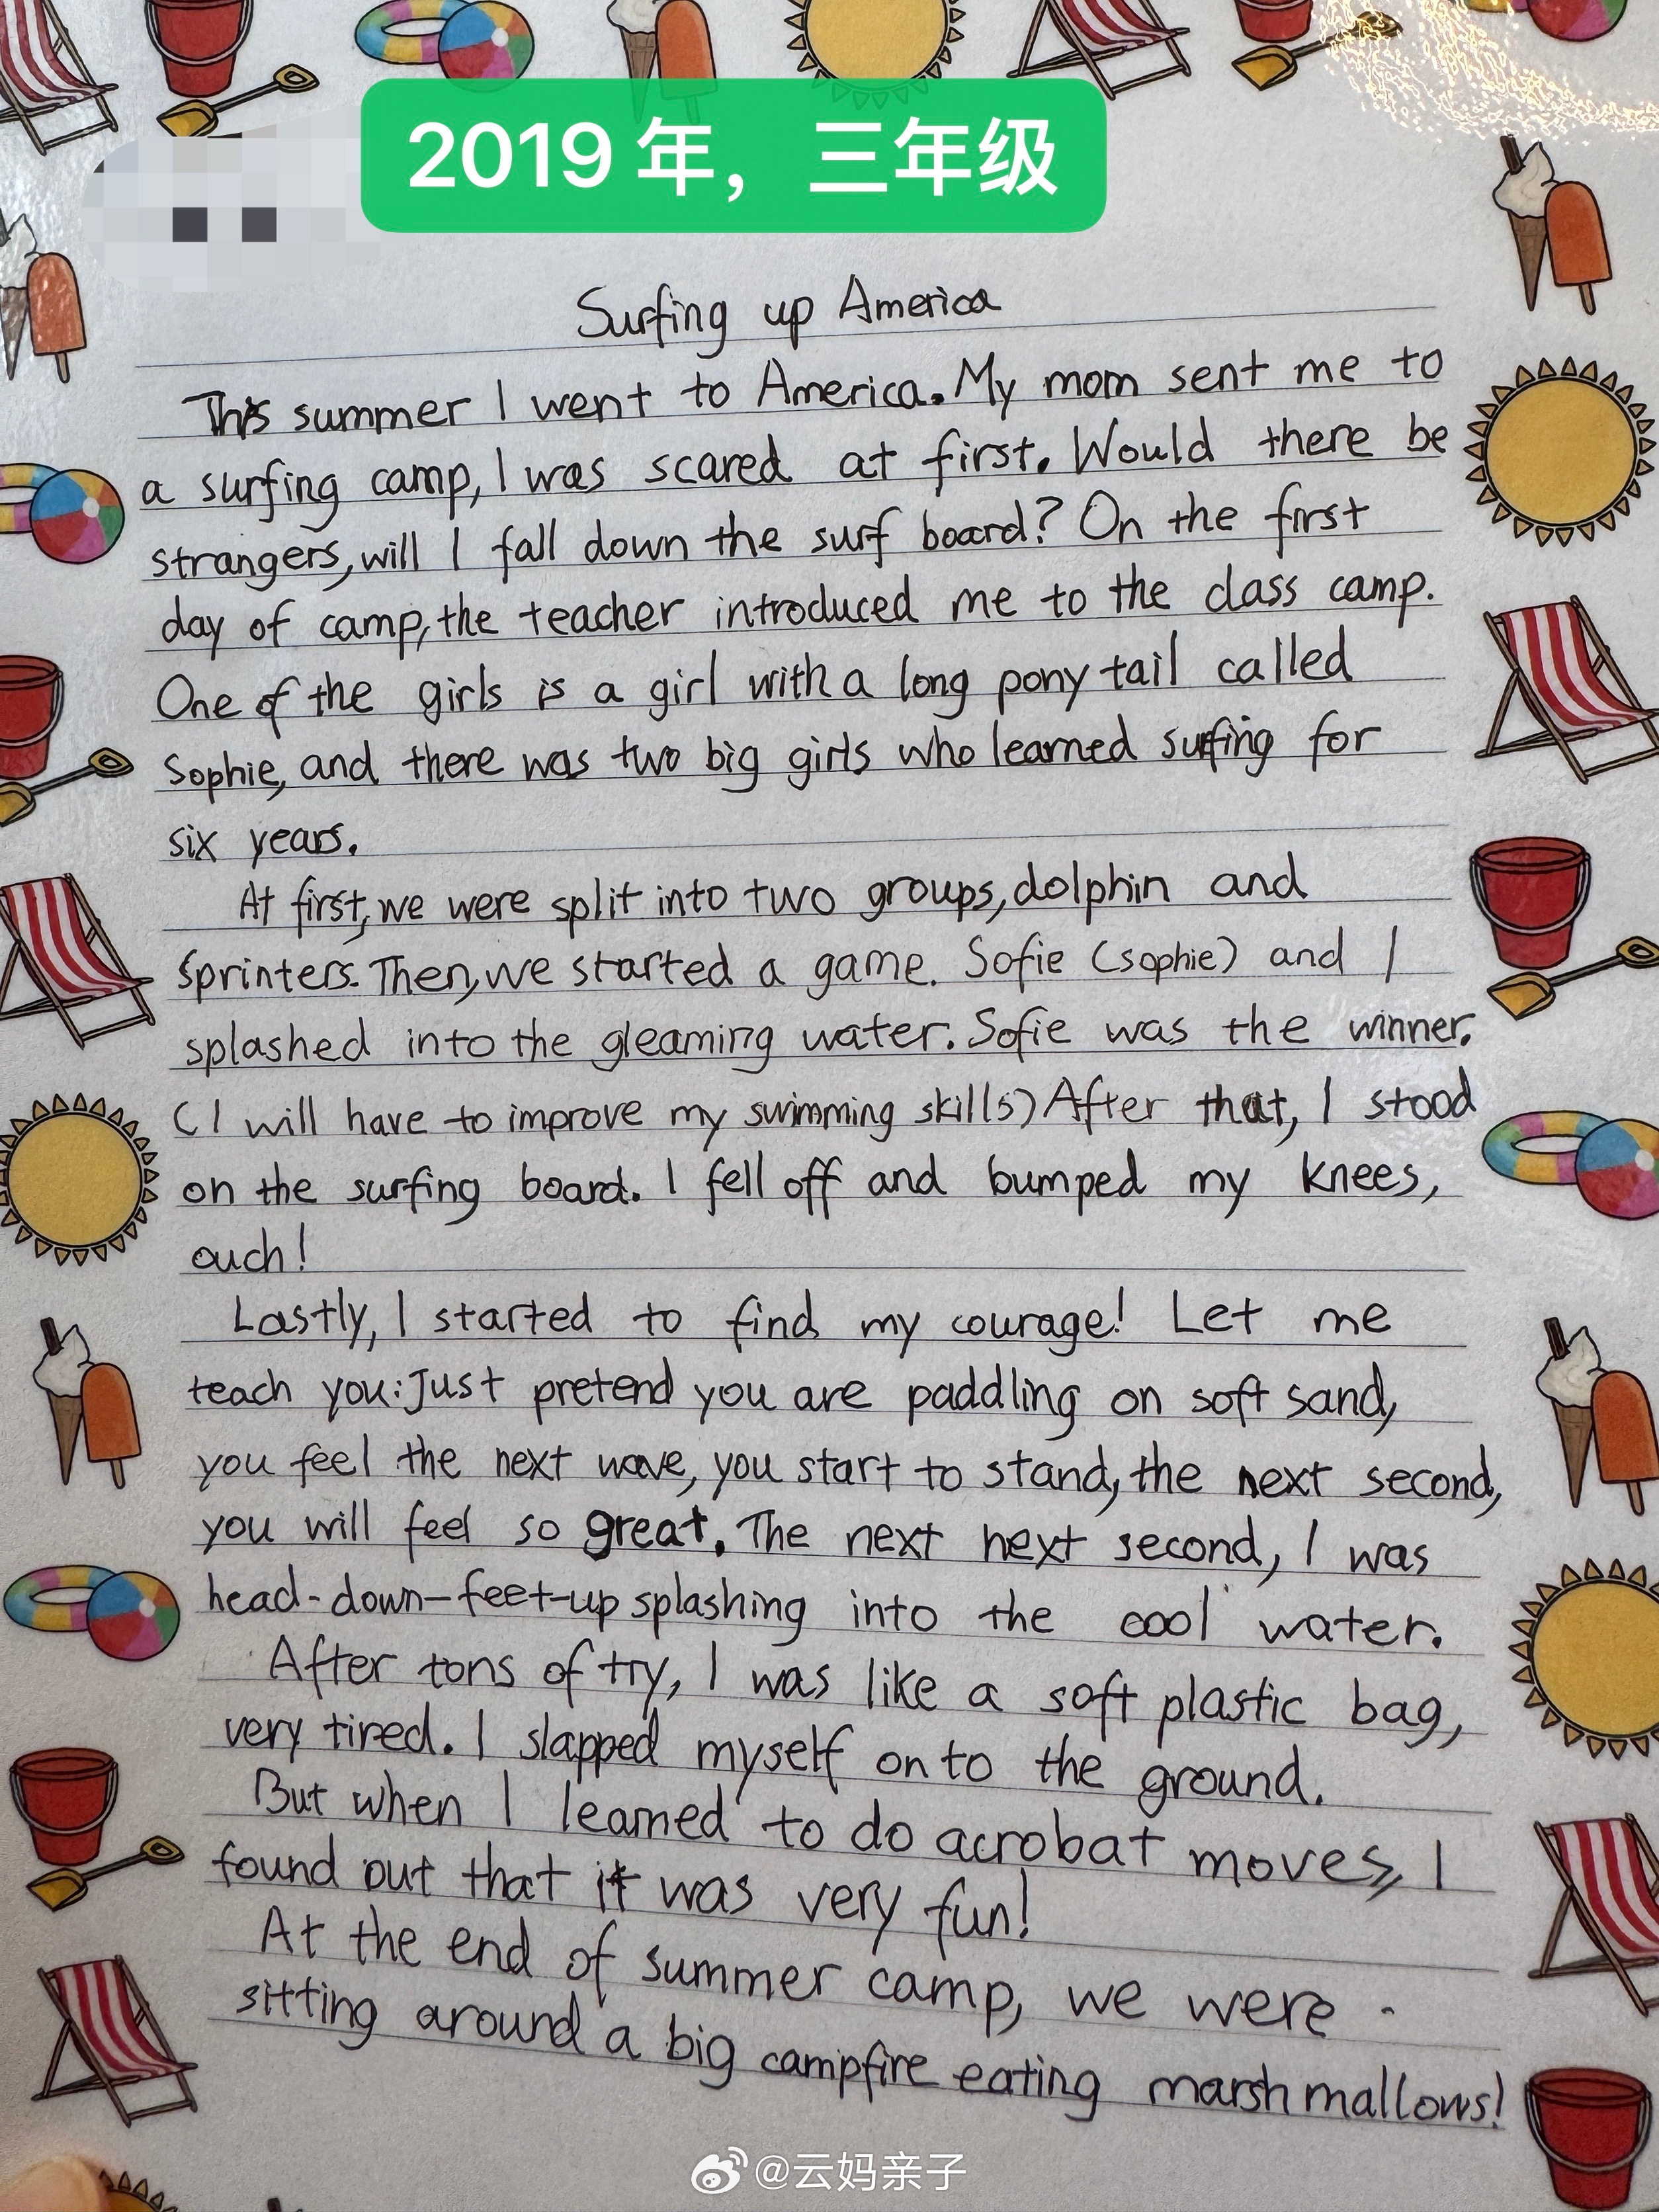 2019 年，三年级
Surfing up America
This summer I went to America. My mom sent me to
a surfing camp, I was scared at first. Would there be
strangers, will I fall down the surf board? On the first
day of camp, the teacher introduced me to the class camp.
One of the girls is a girl with a long pony tail called
Sophie, and there was two big girls who learned surfing for
six years.
At first, we were split into two groups, dolphin and
sprinters. Then, we started a game. Sofie (sophie) and I
splashed into the gleaming water. Sofie was the winner.
(I will have to improve my swimming skills) After that, I stood
on the surfing board. I fell off and bumped my knees,
ouch!
Lastly, I started to find my courage! Let me
teach you: Just pretend you are paddling on soft sand,
you feel the next wave, you start to stand, the next second,
you will feel so great. The next next second, I was
head-down-feet-up splashing into the cool water.
After tons of try, I was like a soft plastic bag,
very tired. I slapped myself on to the ground.
But when I learned to do acrobat moves, I
found out that it was very fun!
At the end of summer camp, we were
sitting around a big campfire eating marsh mallows!
@云妈亲子